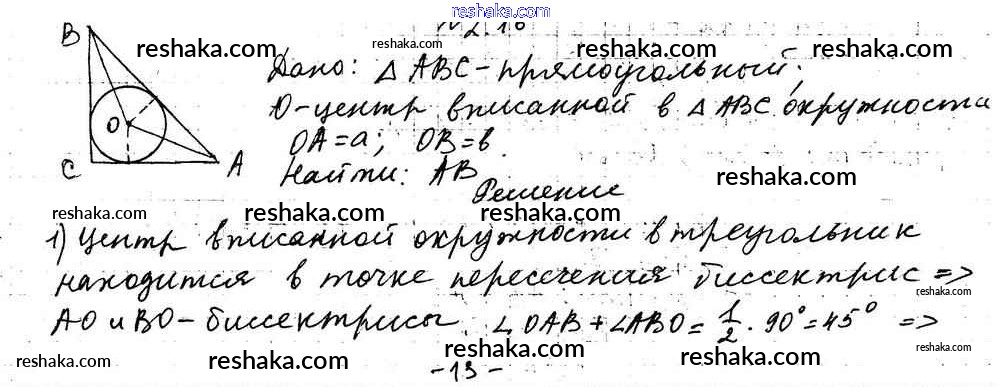 www.reshaka.com
№2.16
B
reshaka.com
reshaka.com
reshaka.com
Дано: △ ABC - прямоугольный;
O - центр вписанной в △ ABC окружности
O
OA = a; OB = b.
C
A
Найти: AB
reshaka.com
Решение
reshaka.com
reshaka.com
reshaka.com
reshaka.com
1) Центр вписанной окружности в треугольник
находится в точке пересечения биссектрис =>
reshaka.com
AO и BO - биссектрисы. ∠OAB + ∠ABO = 1/2 · 90° = 45° =>
reshaka.com
reshaka.com
reshaka.com
reshaka.com
reshaka.com
- 13 -